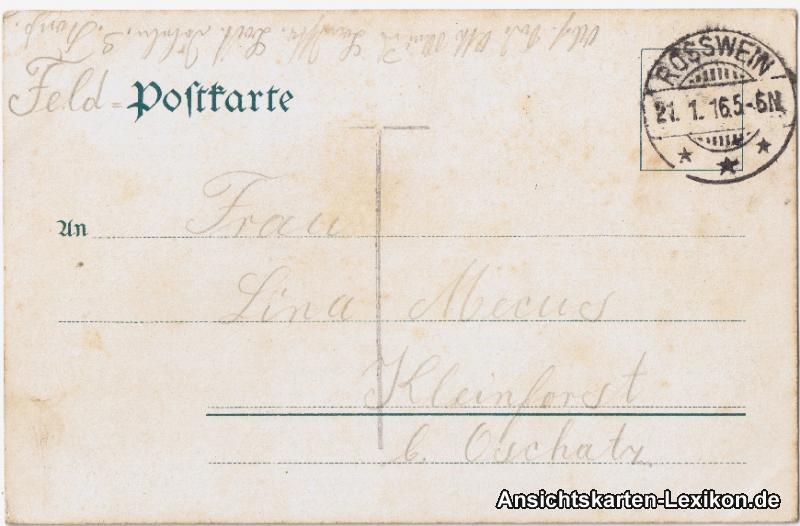 Feld=Postkarte
ROSSWEIN
21. 1. 16. 5-6N.
An Frau
Lina Mecus
Kleinforst
b. Oschatz
Ansichtskarten-Lexikon.de